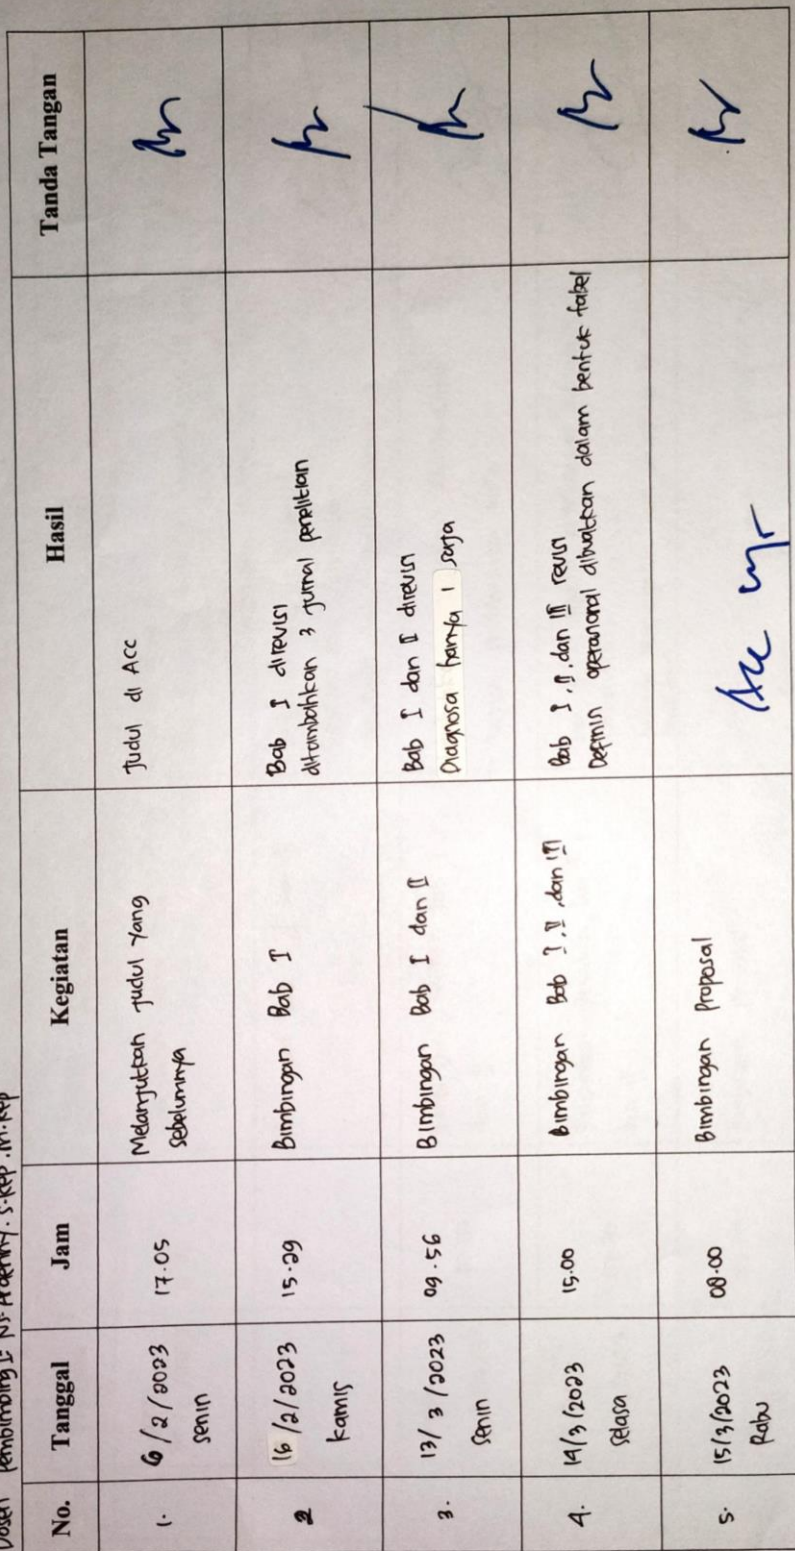 Dosen Pembimbing I: Ns. S.kep .M.kep
No. Tanggal Jam Kegiatan Hasil Tanda Tangan
1. 6/2/2023 17.05 Melanjutkan judul yang Judul di Acc
senin sebelumnya
2 16/2/2023 15.29 Bimbingan Bab I Bab I direvisi
kamis ditambahkan 3 jurnal penelitian
3. 13/3/2023 09.56 Bimbingan Bab I dan II Bab I dan II direvisi
Senin Diagnosa hanya 1 saja
4. 14/3/2023 15.00 Bimbingan Bab I, II, dan III Bab I, II, dan III revisi
Selasa Definin operasional dibuatkan dalam bentuk tabel
5. 15/3/2023 08.00 Bimbingan Proposal Acc
Rabu